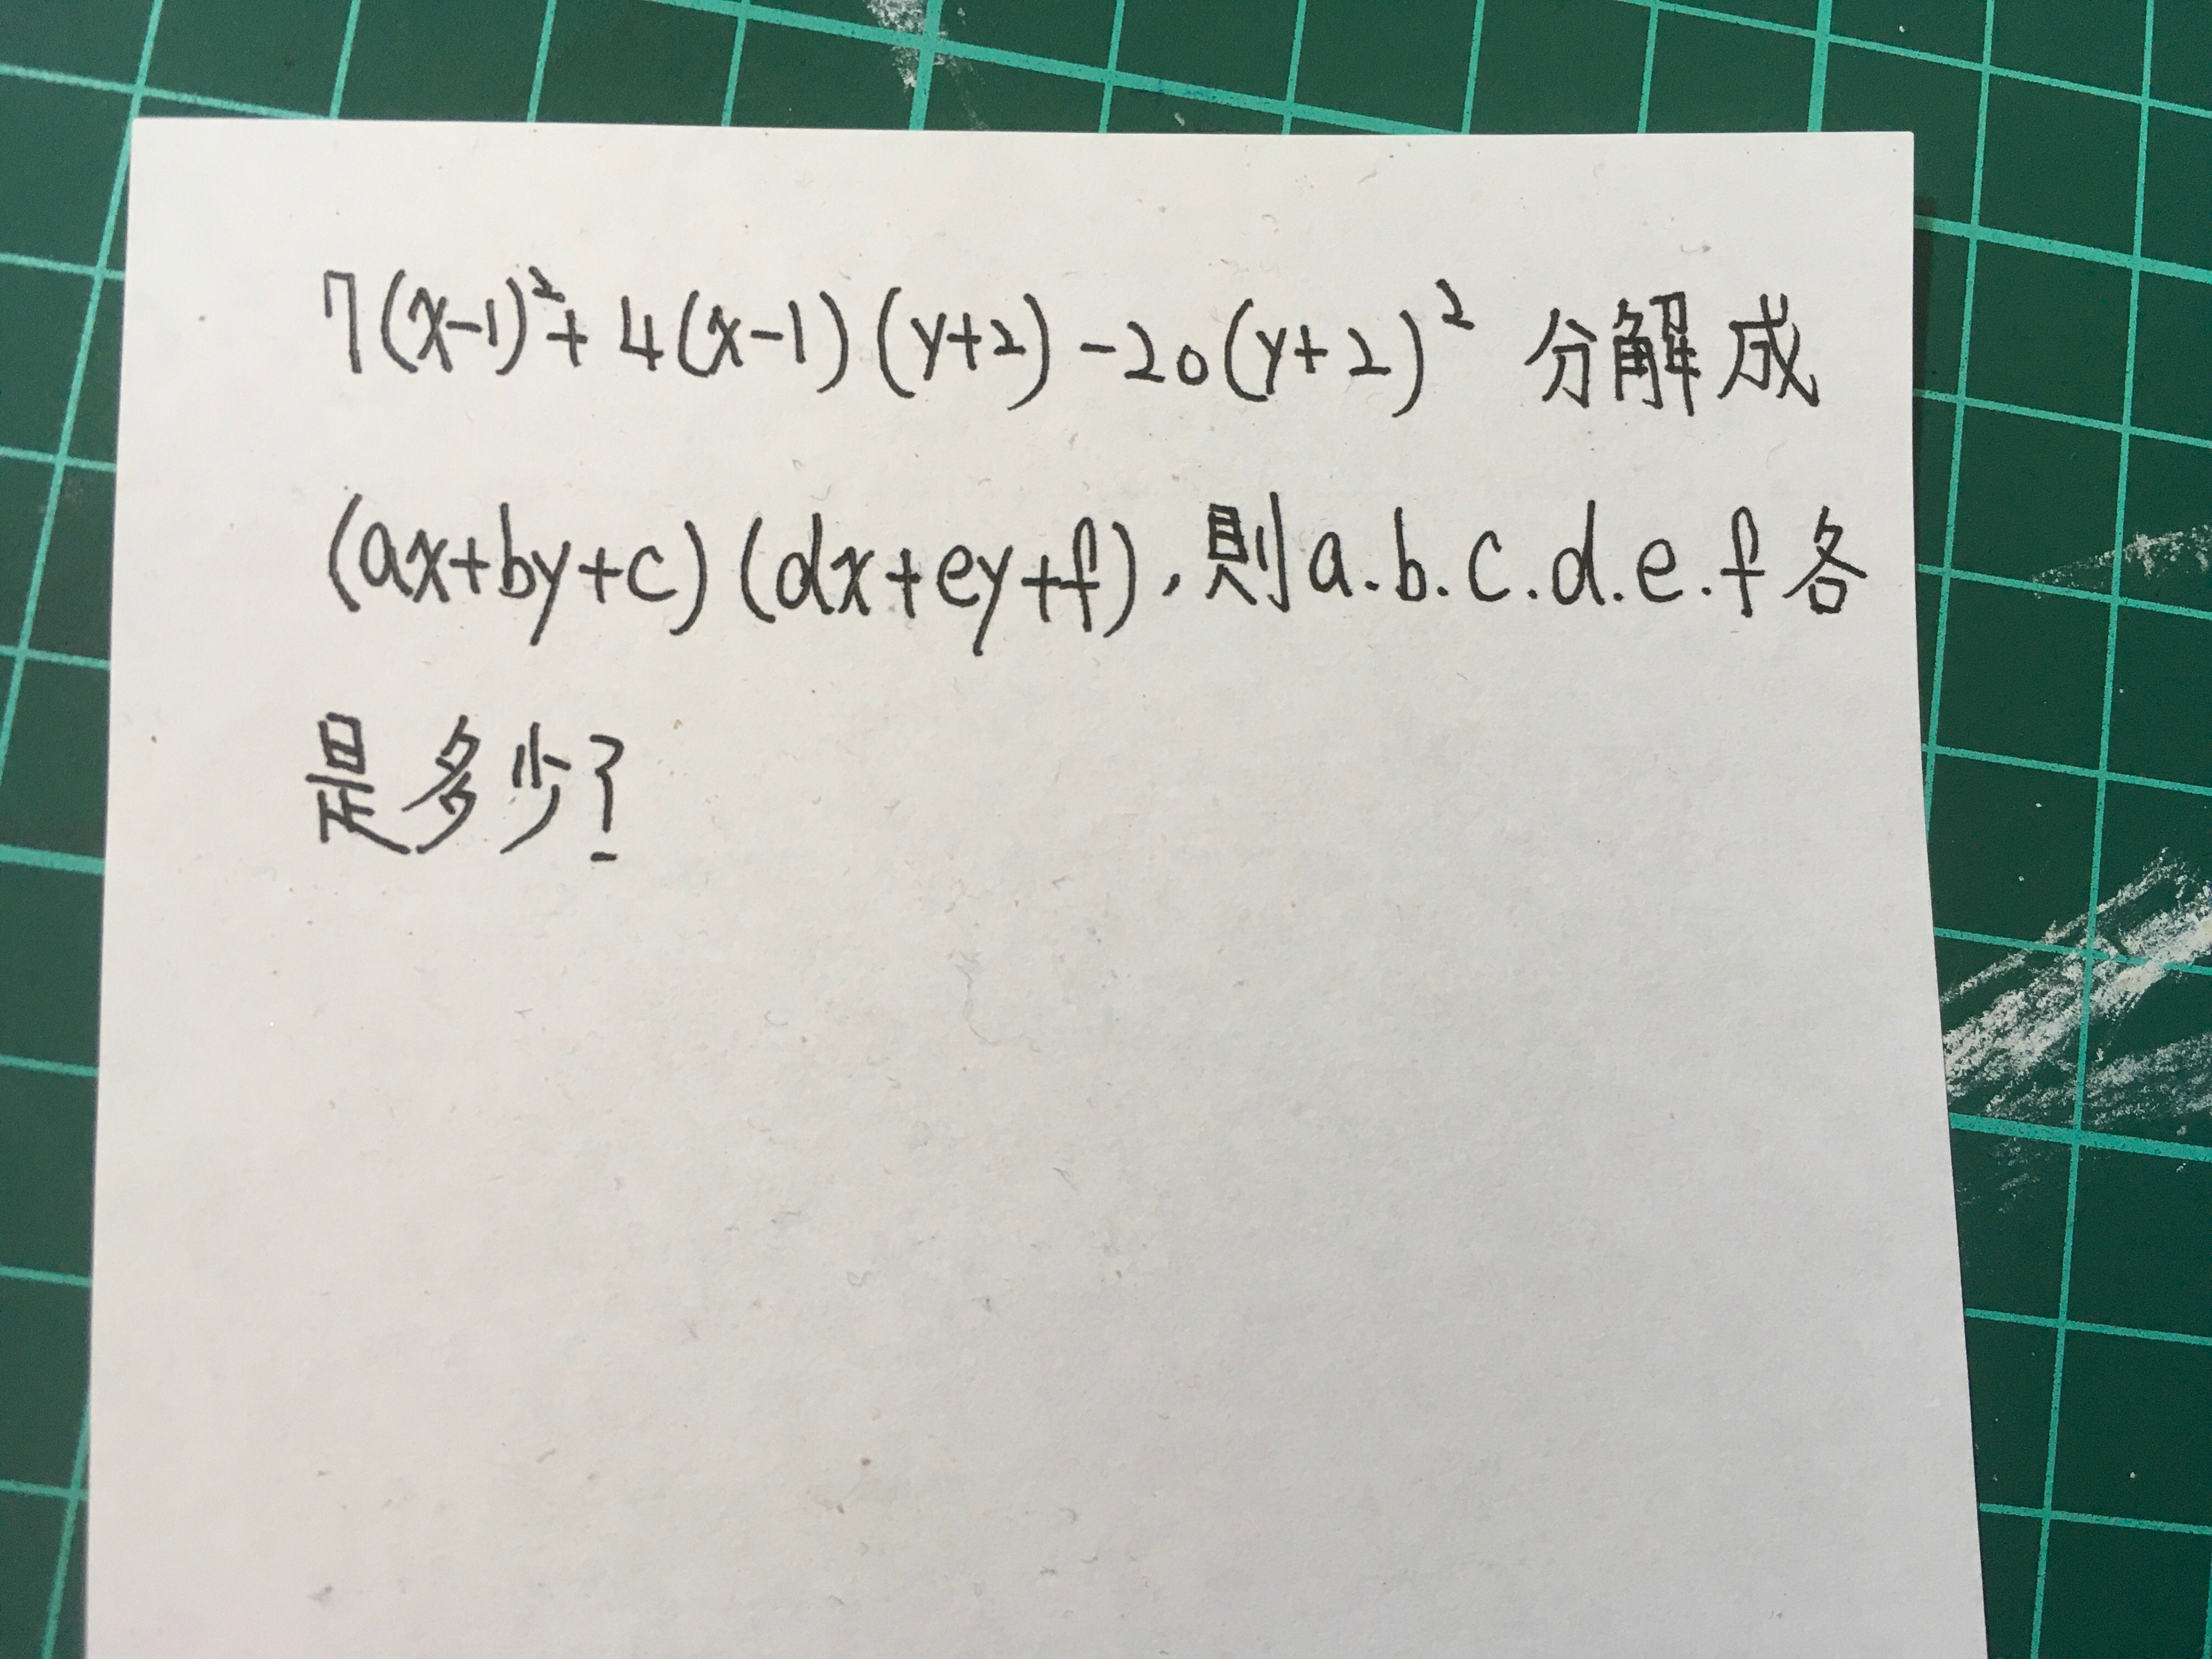 7(x-1)²+4(x-1)(y+2)-20(y+2)² 分解成
(ax+by+c)(dx+ey+f),則a.b.c.d.e.f各
是多少?